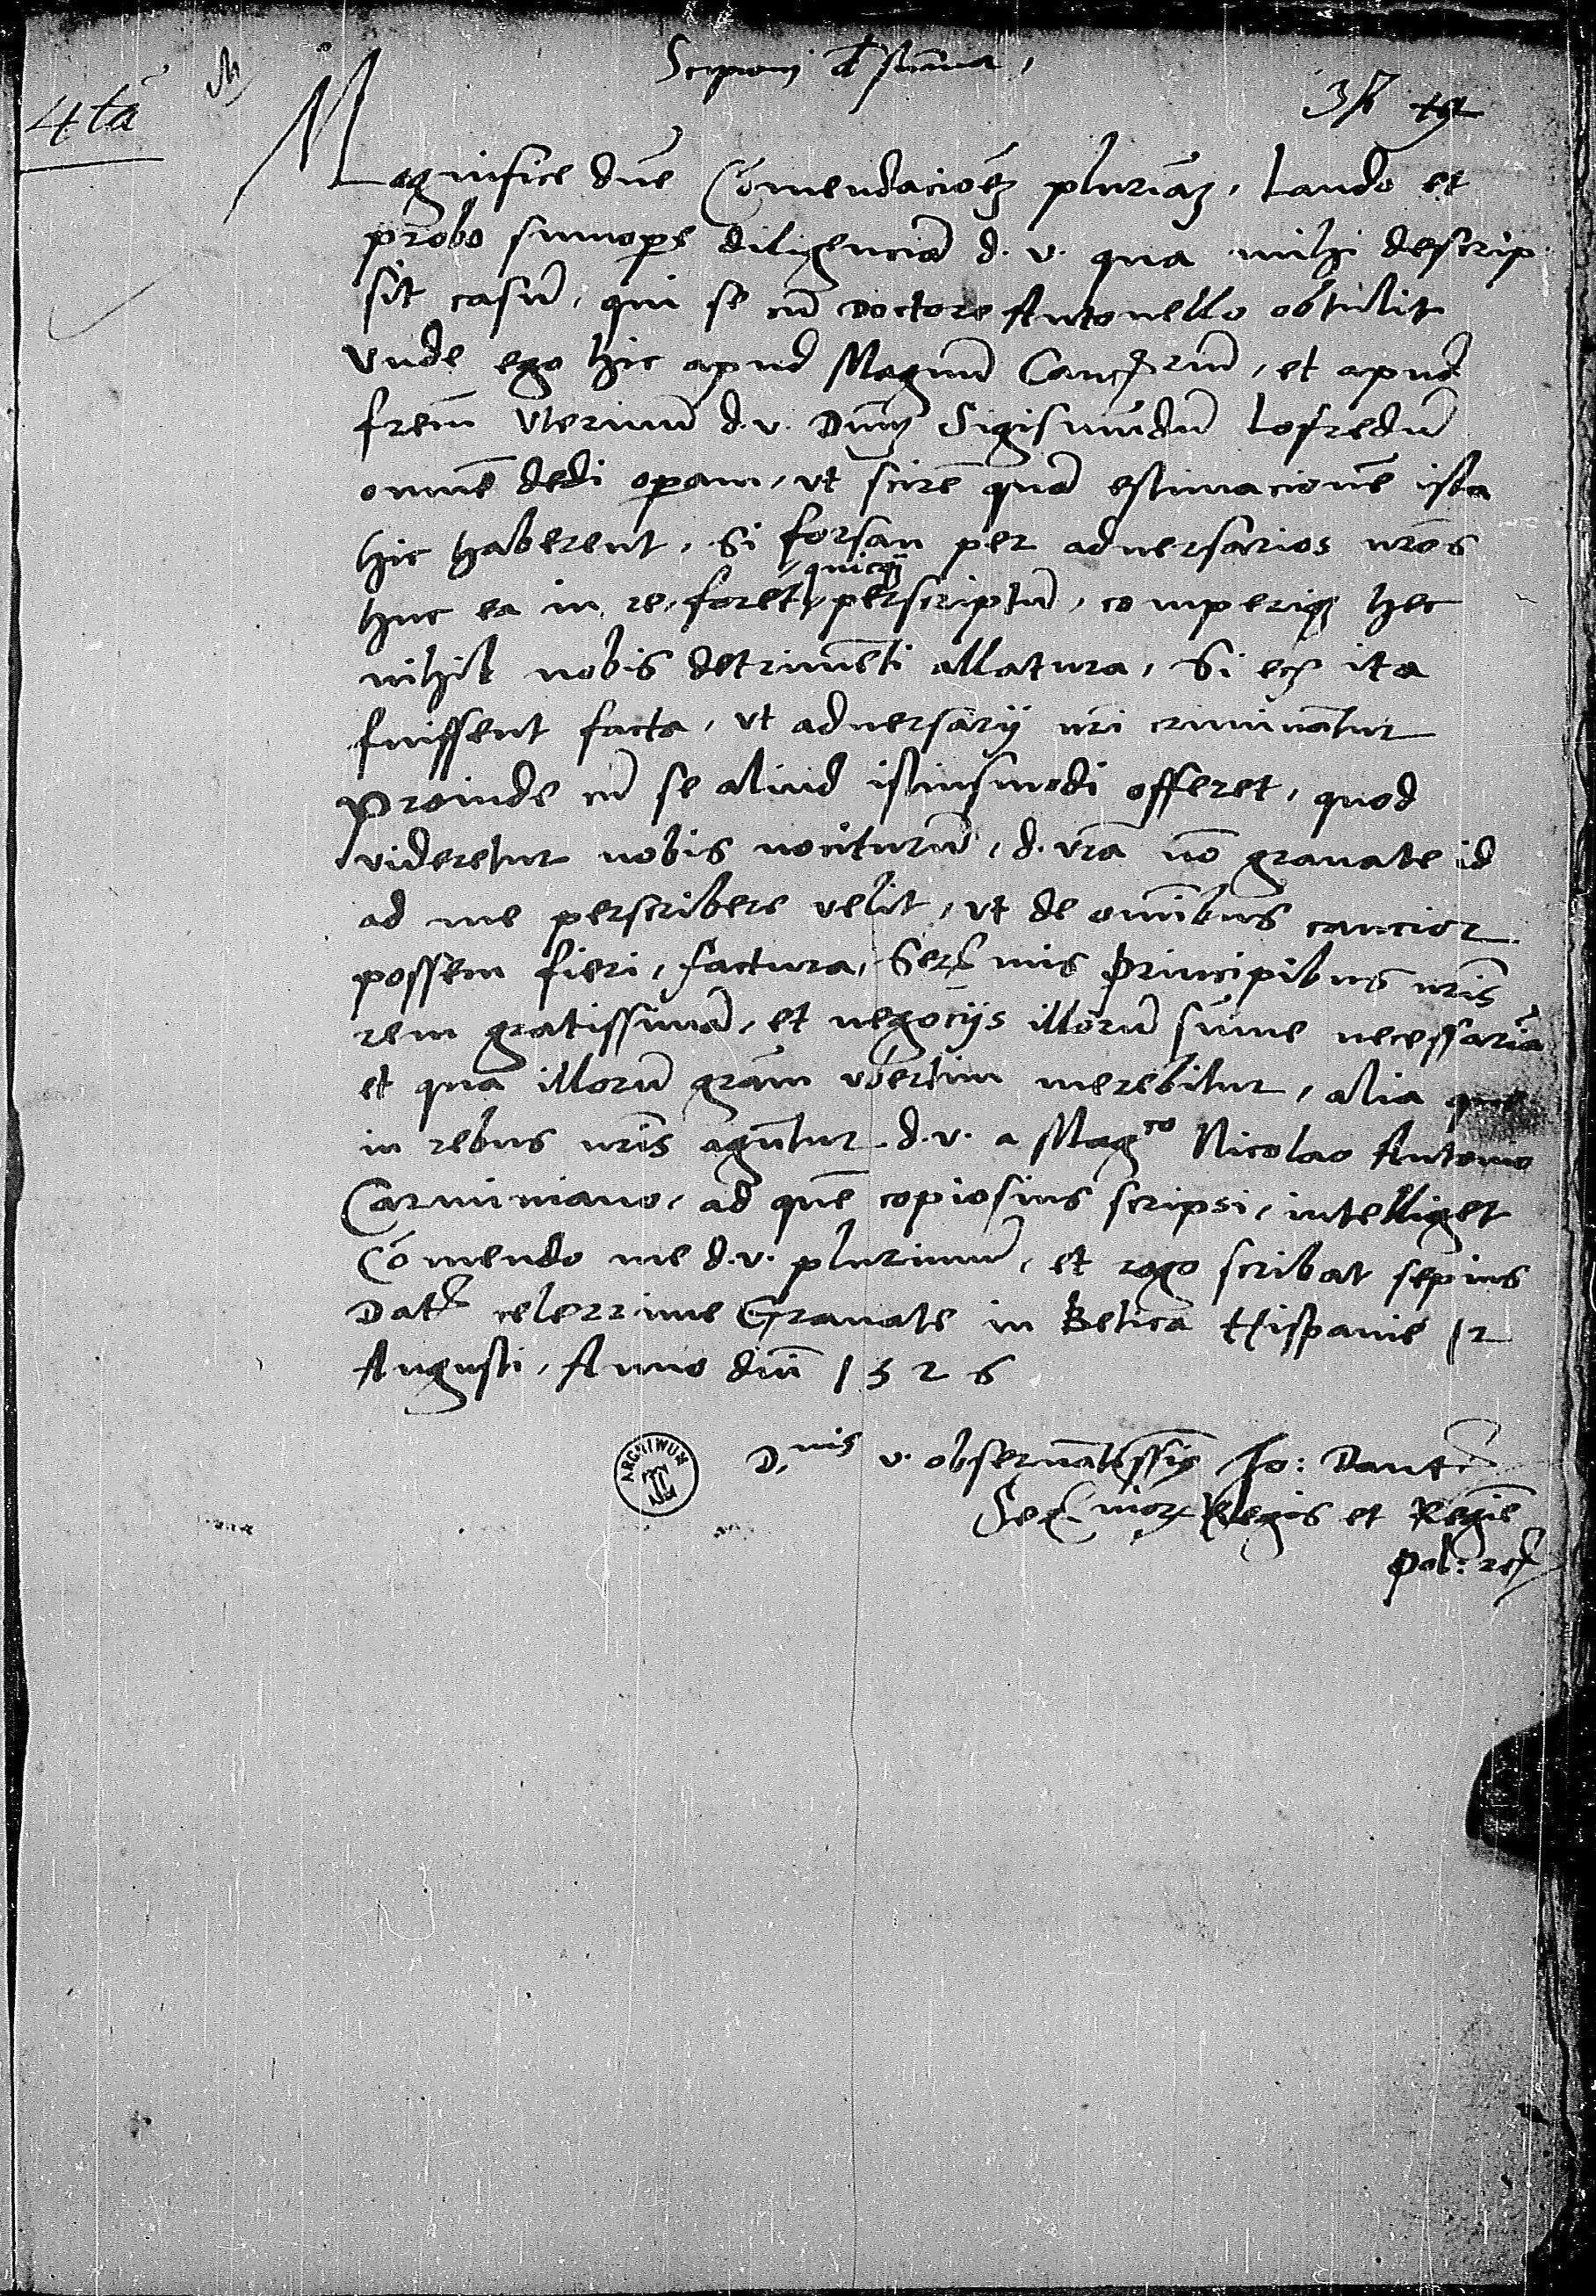 Scipioni de summa,
4ta
Magnifice dñe Cõmendacioẽz plurimãz, Laudo et
probo sumope diligenciã d. v. qua mihi descrip
sit casũ, qui se cũ Doctore Antonello obtulit
Vnde ego hic apud Magnũ Cancrium, et apud
frem̃ Vterinũ d. v. Dnũm Sigismũdũ Lofredũ
omnẽ dedi operam, vt scirẽ quã estimacionẽ ista
hic haberent, Si forsan per aduersarios nr̃os
huc ea in re, foret, quicq̃ perscriptũ, comperiq hec
nihil nobis detrimẽti allatura, Si ecĩ ita
fuissent facta, vt aduersarij nr̃i criminãtur
Proinde cũ se aliud istiusmodi offeret, quod
videretur nobis nociturũ, d. vr̃a nõ grauate id
ad me perscribere velit, vt de omĩbus caucior
possem fieri, factura, Sermis Principibus nr̃is
rem gratissimã, et negocijs illorũ sũme necessariã
et qua illorũ grãm vbertim merebitur, alia que
in rebus nr̃is agũtur d. v. a Magco Nicolao Antonio
Carminiano, ad quẽ copiosius scripsi, intelliget
Cõmendo me d. v. plurimũ, et rogo scribat sepius
Dat celerrime Granate in Betica Hispanie 12
Augusti, Anno dnĩ 1526
D. nis v. obseruãtissig Jo: Dant
Ser morz Regis et Regiẽ
Pol: rcz
ARCHIWUM